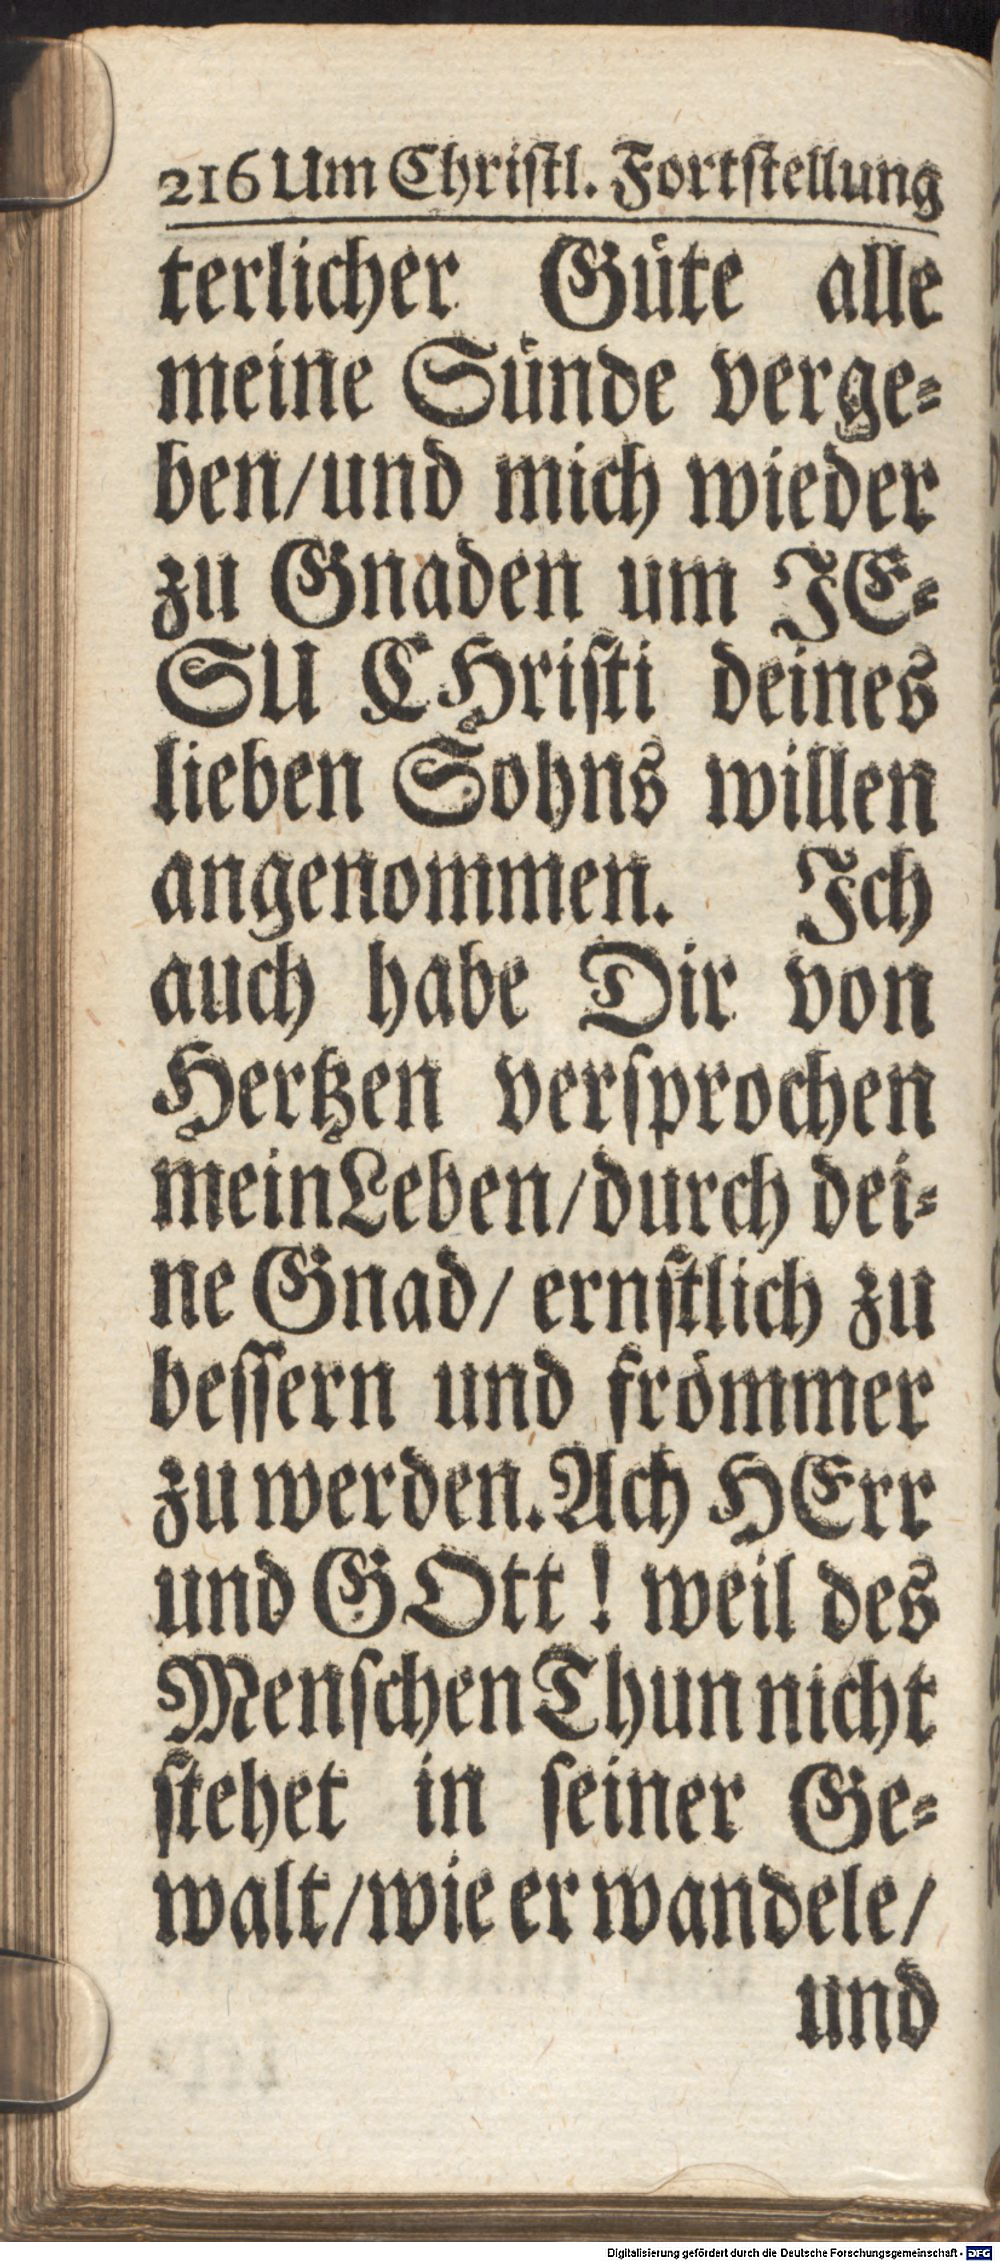 216 Um Chriſtl. Fortſtellung
terlicher Guͤte alle
meine Suͤnde verge⸗
ben/und mich wieder
zu Gnaden um JE⸗
SU CHriſti deines
lieben Sohns willen
angenommen. Jch
auch habe Dir von
Hertzen verſprochen
mein Leben/durch dei⸗
ne Gnad/ ernſtlich zu
beſſern und froͤmmer
zu werden. Ach HErr
und GOtt! weil des
Menſchen Thun nicht
ſtehet in ſeiner Ge⸗
walt/wie er wandele/
und
Digitalisierung gefördert durch die Deutsche Forschungsgemeinschaft - DFG